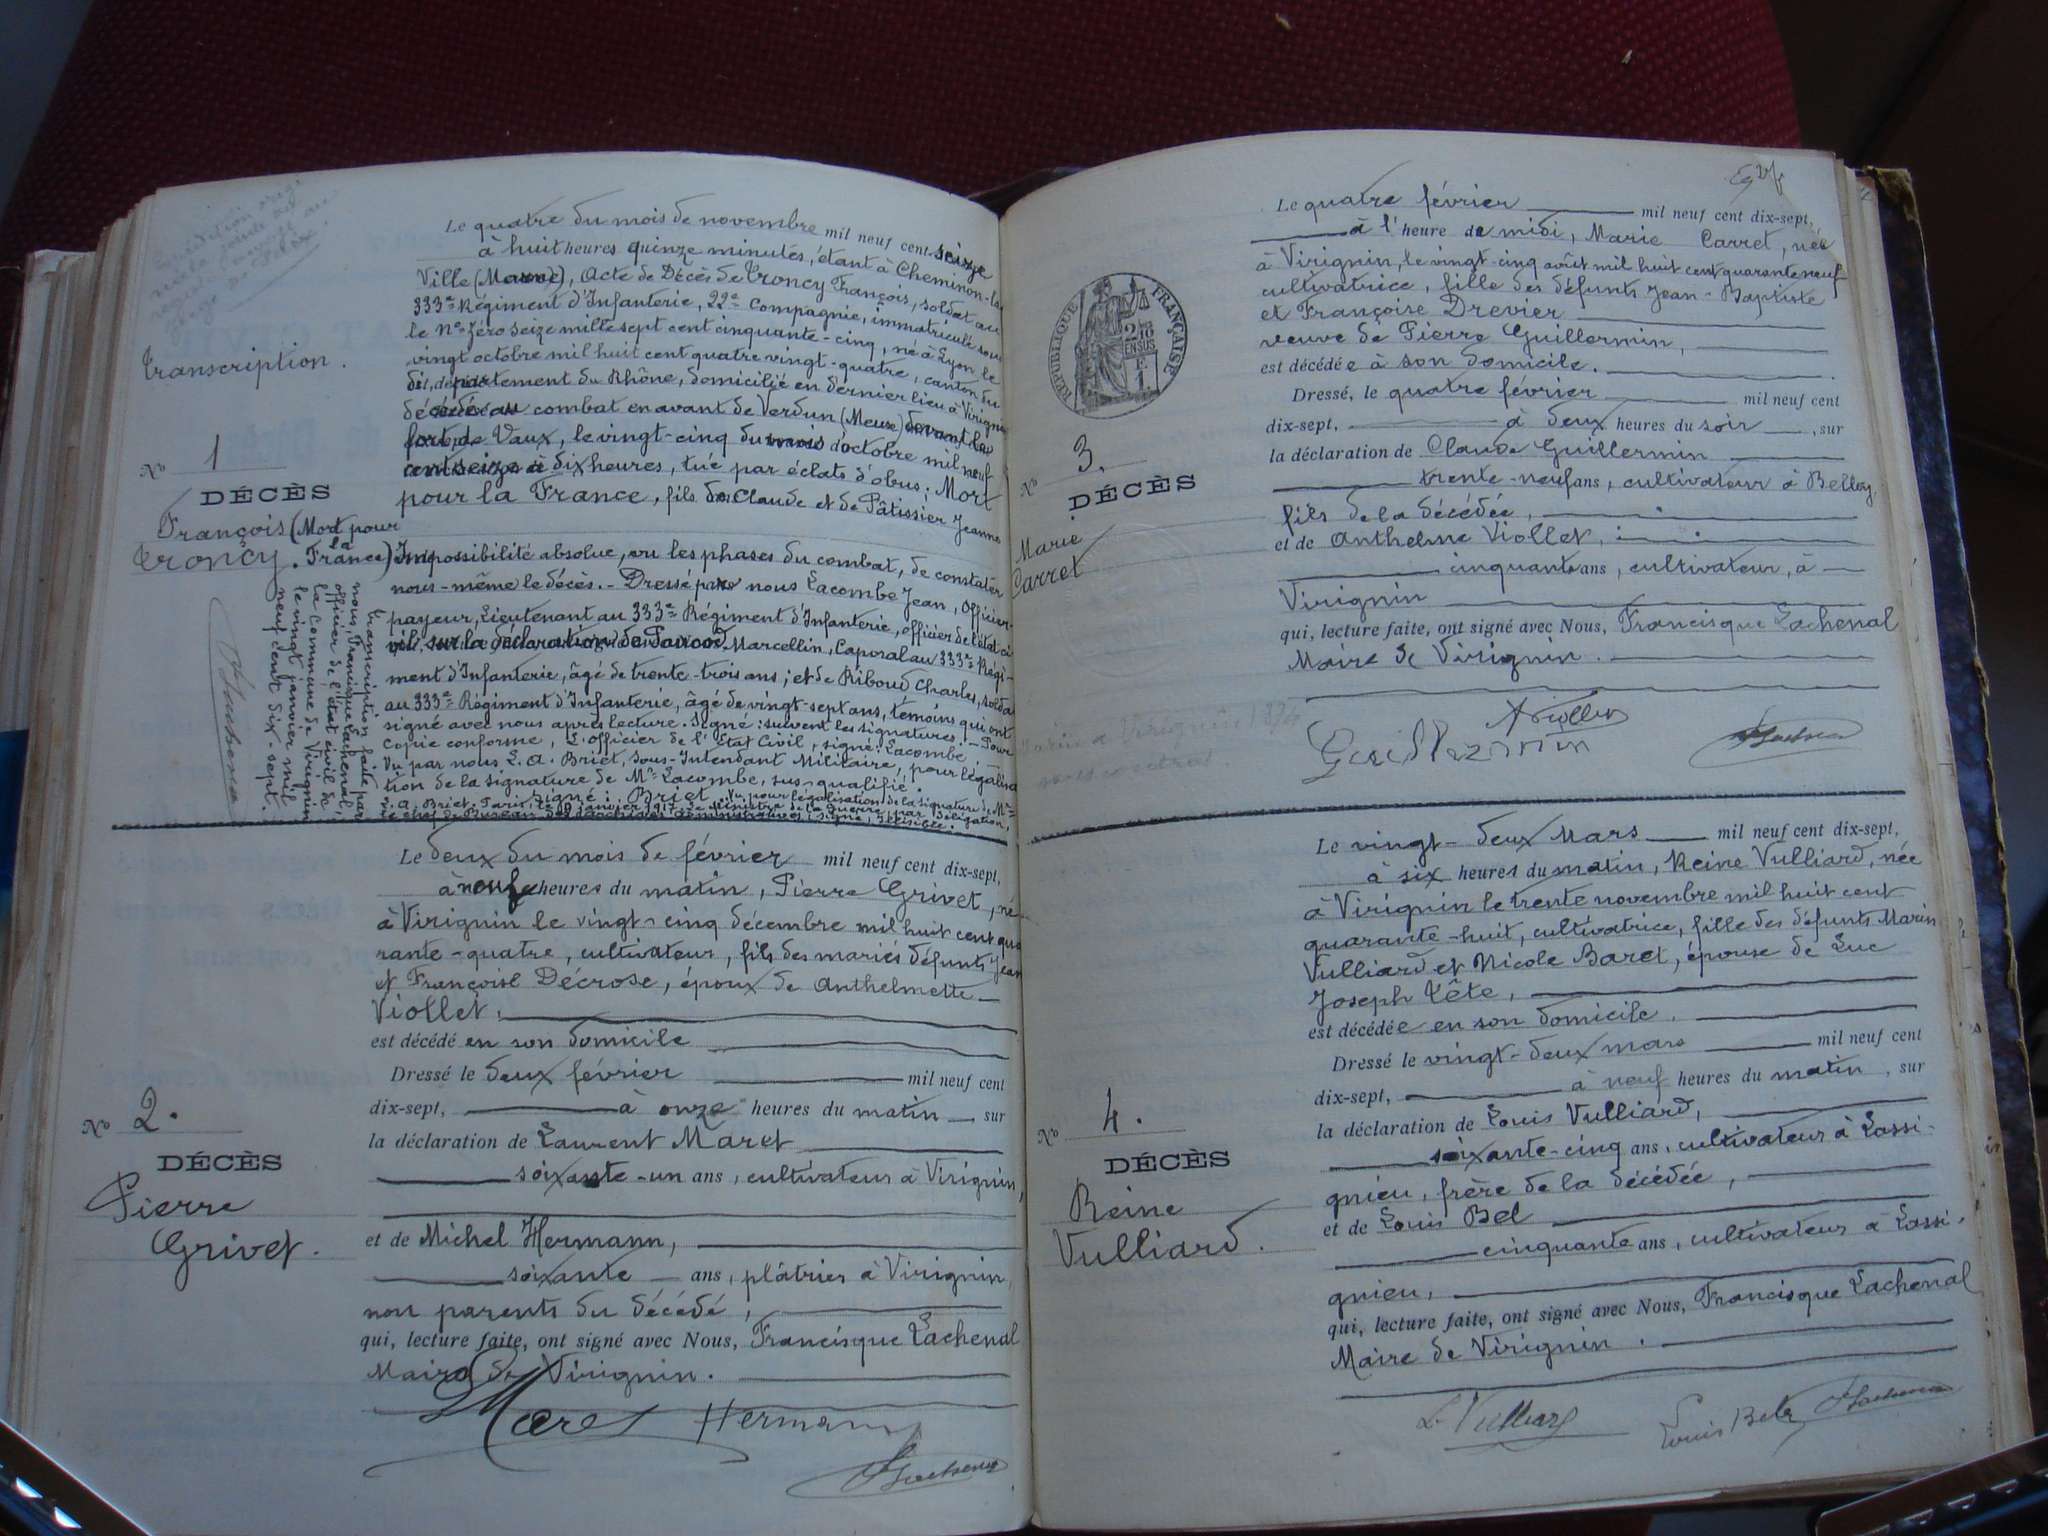 Transcription.
No 1
DÉCÈS
François (Mort pour
Troncy. la France)
Transcription faite par
nous, Francisque Lachenal,
officier de l'état civil de
la Commune de Virignin
le vingt janvier mil
neuf cent dix-sept.
Le quatre du mois de novembre mil neuf cent seize
à huit heures quinze minutes, étant à Cheminon-la-
Ville (Marne), Acte de Décès de Troncy François, soldat au
333e Régiment d'Infanterie, 22e Compagnie, immatriculé sous
le No Zéro seize mille sept cent cinquante-cinq, né à Lyon le
vingt octobre mil huit cent quatre vingt-quatre, canton du
dit, département du Rhône, domicilié en dernier lieu à Virignin
décédé au combat en avant de Verdun (Meuse) devant le
fort de Vaux, le vingt-cinq du mois d'octobre mil neuf
cent seize à dix heures, tué par éclats d'obus. Mort
pour la France, fils de Claude et de Pâtissier Jeanne
Impossibilité absolue, vu les phases du combat, de constater
nous-même le décès. - Dressé par nous Lacombe Jean, Officier
payeur, Lieutenant au 333e Régiment d'Infanterie, officier de l'état ci-
vil, sur la déclaration de Marcellin, Caporal au 333e Régi-
ment d'Infanterie, âgé de trente-trois ans; et de Riboud Charles, soldat
au 333e Régiment d'Infanterie, âgé de vingt-sept ans, témoins qui ont
signé avec nous après lecture. Signé: suivent les signatures. - Pour
Copie conforme, L'officier de l'Etat Civil, signé: Lacombe
Vu par nous L. A. Briet, Sous-Intendant Militaire, pour légalisa-
tion de la signature de Mr Lacombe, sus-qualifié.
Signé: Briet. Vu pour légalisation de la signature de Mr
L. A. Briet. Paris, le janvier 1917. Le Ministre de la Guerre, par Délégation,
le chef de Bureau des archives administratives, signé, illisible.
No 2.
DÉCÈS
Pierre
Grivet.
Le deux du mois de février mil neuf cent dix-sept,
à neuf heures du matin, Pierre Grivet, né
à Virignin le vingt-cinq décembre mil huit cent qua
rante-quatre, cultivateur, fils des mariés défunts Jean
et Françoise Décrose, époux de Anthelmette
Viollet,
est décédé en son domicile
Dressé le deux février mil neuf cent
dix-sept, à onze heures du matin sur
la déclaration de Laurent Maret
soixante-un ans, cultivateur à Virignin,
et de Michel Hermann,
soixante ans, plâtrier à Virignin,
non parents du décédé,
qui, lecture faite, ont signé avec Nous, Francisque Lachenal
Maire de Virignin.
Maret Hermann
Lachenal
REPUBLIQUE FRANÇAISE
2/10 EN SUS
No 3.
DÉCÈS
Marie
Carret
Le quatre février mil neuf cent dix-sept,
à l'heure de midi, Marie Carret, née
à Virignin, le vingt-cinq août mil huit cent quarante neuf
cultivatrice, fille des défunts Jean-Baptiste
et Françoise Drevier
veuve de Pierre Guillermin,
est décédée à son domicile.
Dressé, le quatre février mil neuf cent
dix-sept, à deux heures du soir, sur
la déclaration de Claude Guillermin
trente-neuf ans, cultivateur à Belley,
fils de la décédée,
et de Anthelme Viollet,
cinquante ans, cultivateur, à
Virignin
qui, lecture faite, ont signé avec Nous, Francisque Lachenal
Maire de Virignin.
A Viollet
Guillermin Lachenal
No 4.
DÉCÈS
Reine
Vulliard.
Le vingt-deux Mars mil neuf cent dix-sept,
à six heures du matin, Reine Vulliard, née
à Virignin le trente novembre mil huit cent
quarante-huit, cultivatrice, fille des défunts Marin
Vulliard et Nicole Baret, épouse de Luc
Joseph Tête,
est décédée en son domicile.
Dressé le vingt-deux mars mil neuf cent
dix-sept, à neuf heures du matin, sur
la déclaration de Louis Vulliard,
soixante-cinq ans, cultivateur à Lassi-
gnieu, frère de la décédée,
et de Louis Bel
cinquante ans, cultivateur à Lassi-
gnieu,
qui, lecture faite, ont signé avec Nous, Francisque Lachenal
Maire de Virignin.
L. Vulliard Louis Bel Lachenal